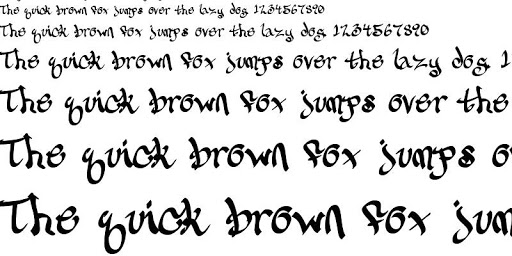 The quick brown fox jumps over the lazy dog. 1234567890
The quick brown fox jumps over the lazy dog. 1234567890
The quick brown fox jumps over the lazy dog. 1
The quick brown fox jumps over the
The quick brown fox jumps o
The quick brown fox jum